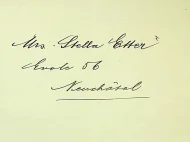 Mrs. Stella Etter
Evole 56
Neuchâtel